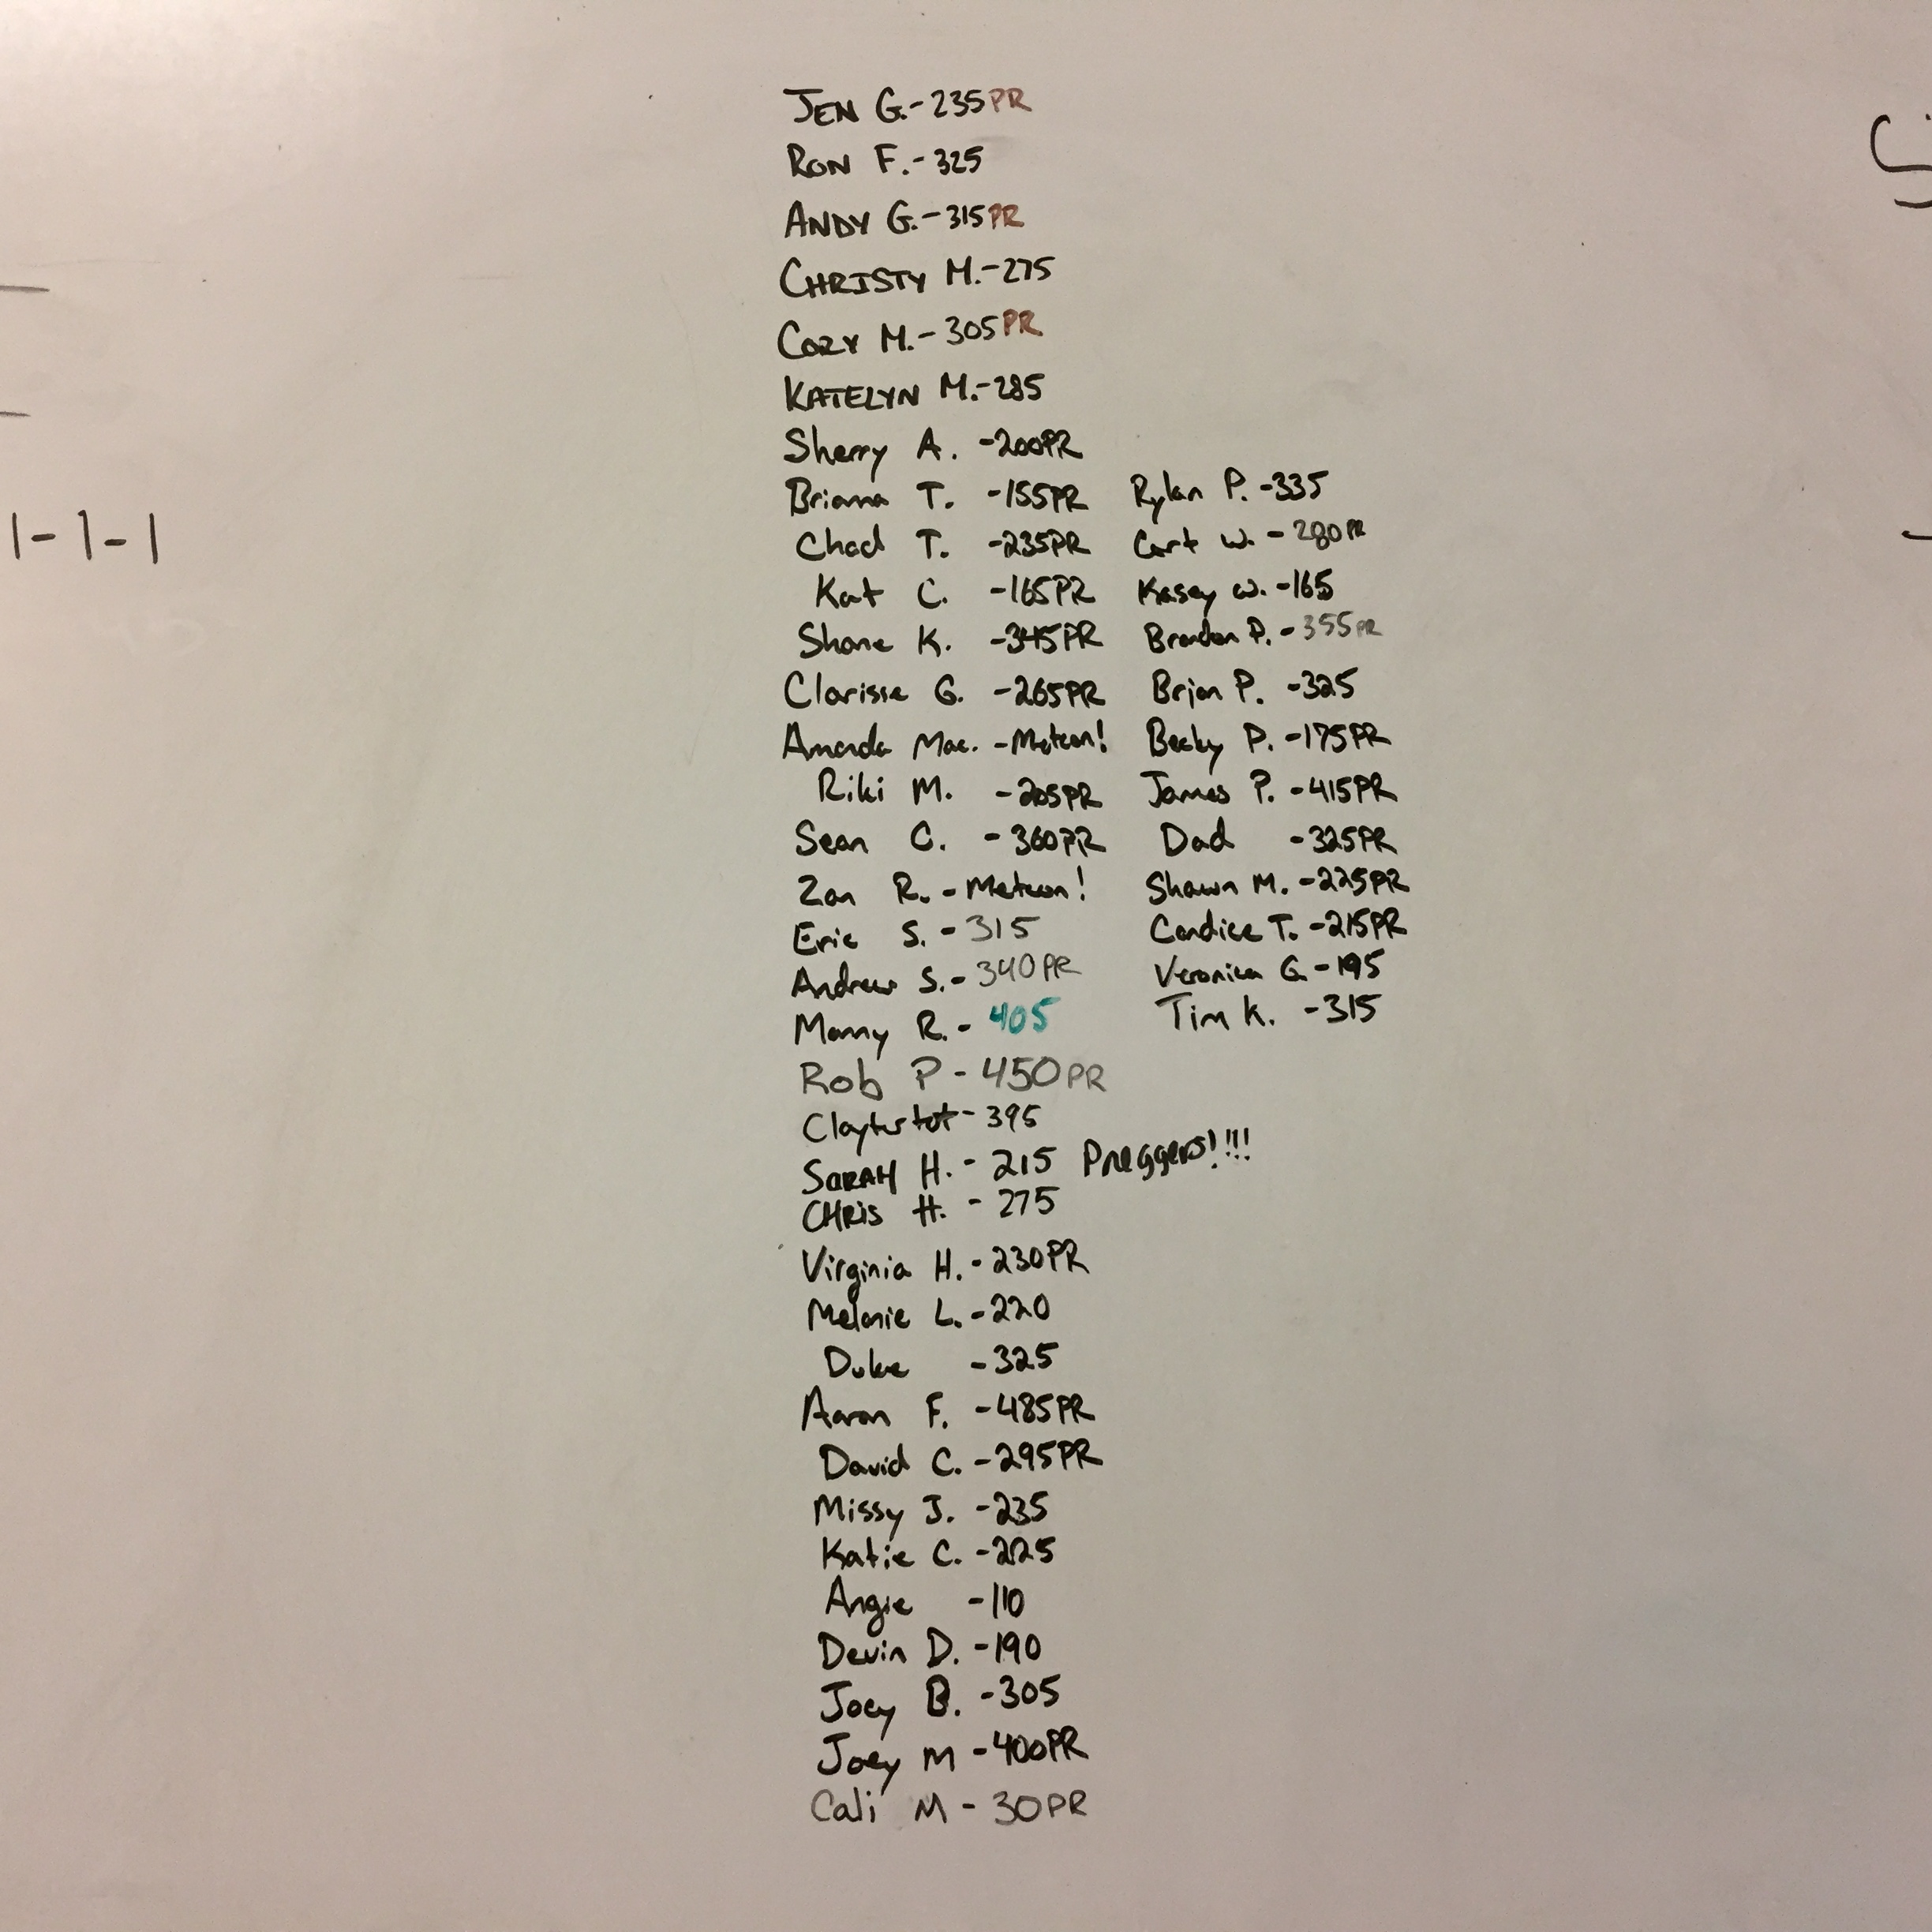 JEN G.-235PR
RON F.-325
ANDY G.-315PR
CHRISTY M.-275
CORY M.-305PR
KATELYN M.-285
Sherry A. -200PR
Briana T. -155PR
Chad T. -235PR
Kat C. -165PR
Shane K. -345PR
Clarisse G. -265PR
Amanda Mac. -Metcon!
Riki M. -205PR
Sean C. -360PR
Zan R. -Metcon!
Eric S. -315
Andrew S. -340PR
Manny R. -405
Rob P -450PR
Claytertot -395
SARAH H. -215 Preggers!!!!
CHRIS H. -275
Virginia H. -230PR
Melanie L. -220
Duke -325
Aaron F. -485PR
David C. -295PR
Missy J. -235
Katie C. -225
Angie -110
Devin D. -190
Joey B. -305
Joey M -400PR
Cali M -30PR
Rylan P. -335
W. -280PR
Kasey W. -165
Brandon P. -355PR
Brian P. -325
Becky P. -175PR
James P. -415PR
Dad -325PR
Shawn M. -225PR
Candice T. -215PR
Veronica G -195
Tim K. -315
1-1-1